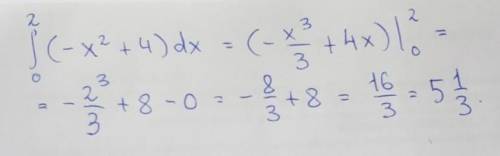 ∫₀² (-x² + 4) dx = (-x³/3 + 4x)|₀² =
= -2³/3 + 8 - 0 = -8/3 + 8 = 16/3 = 5 1/3.